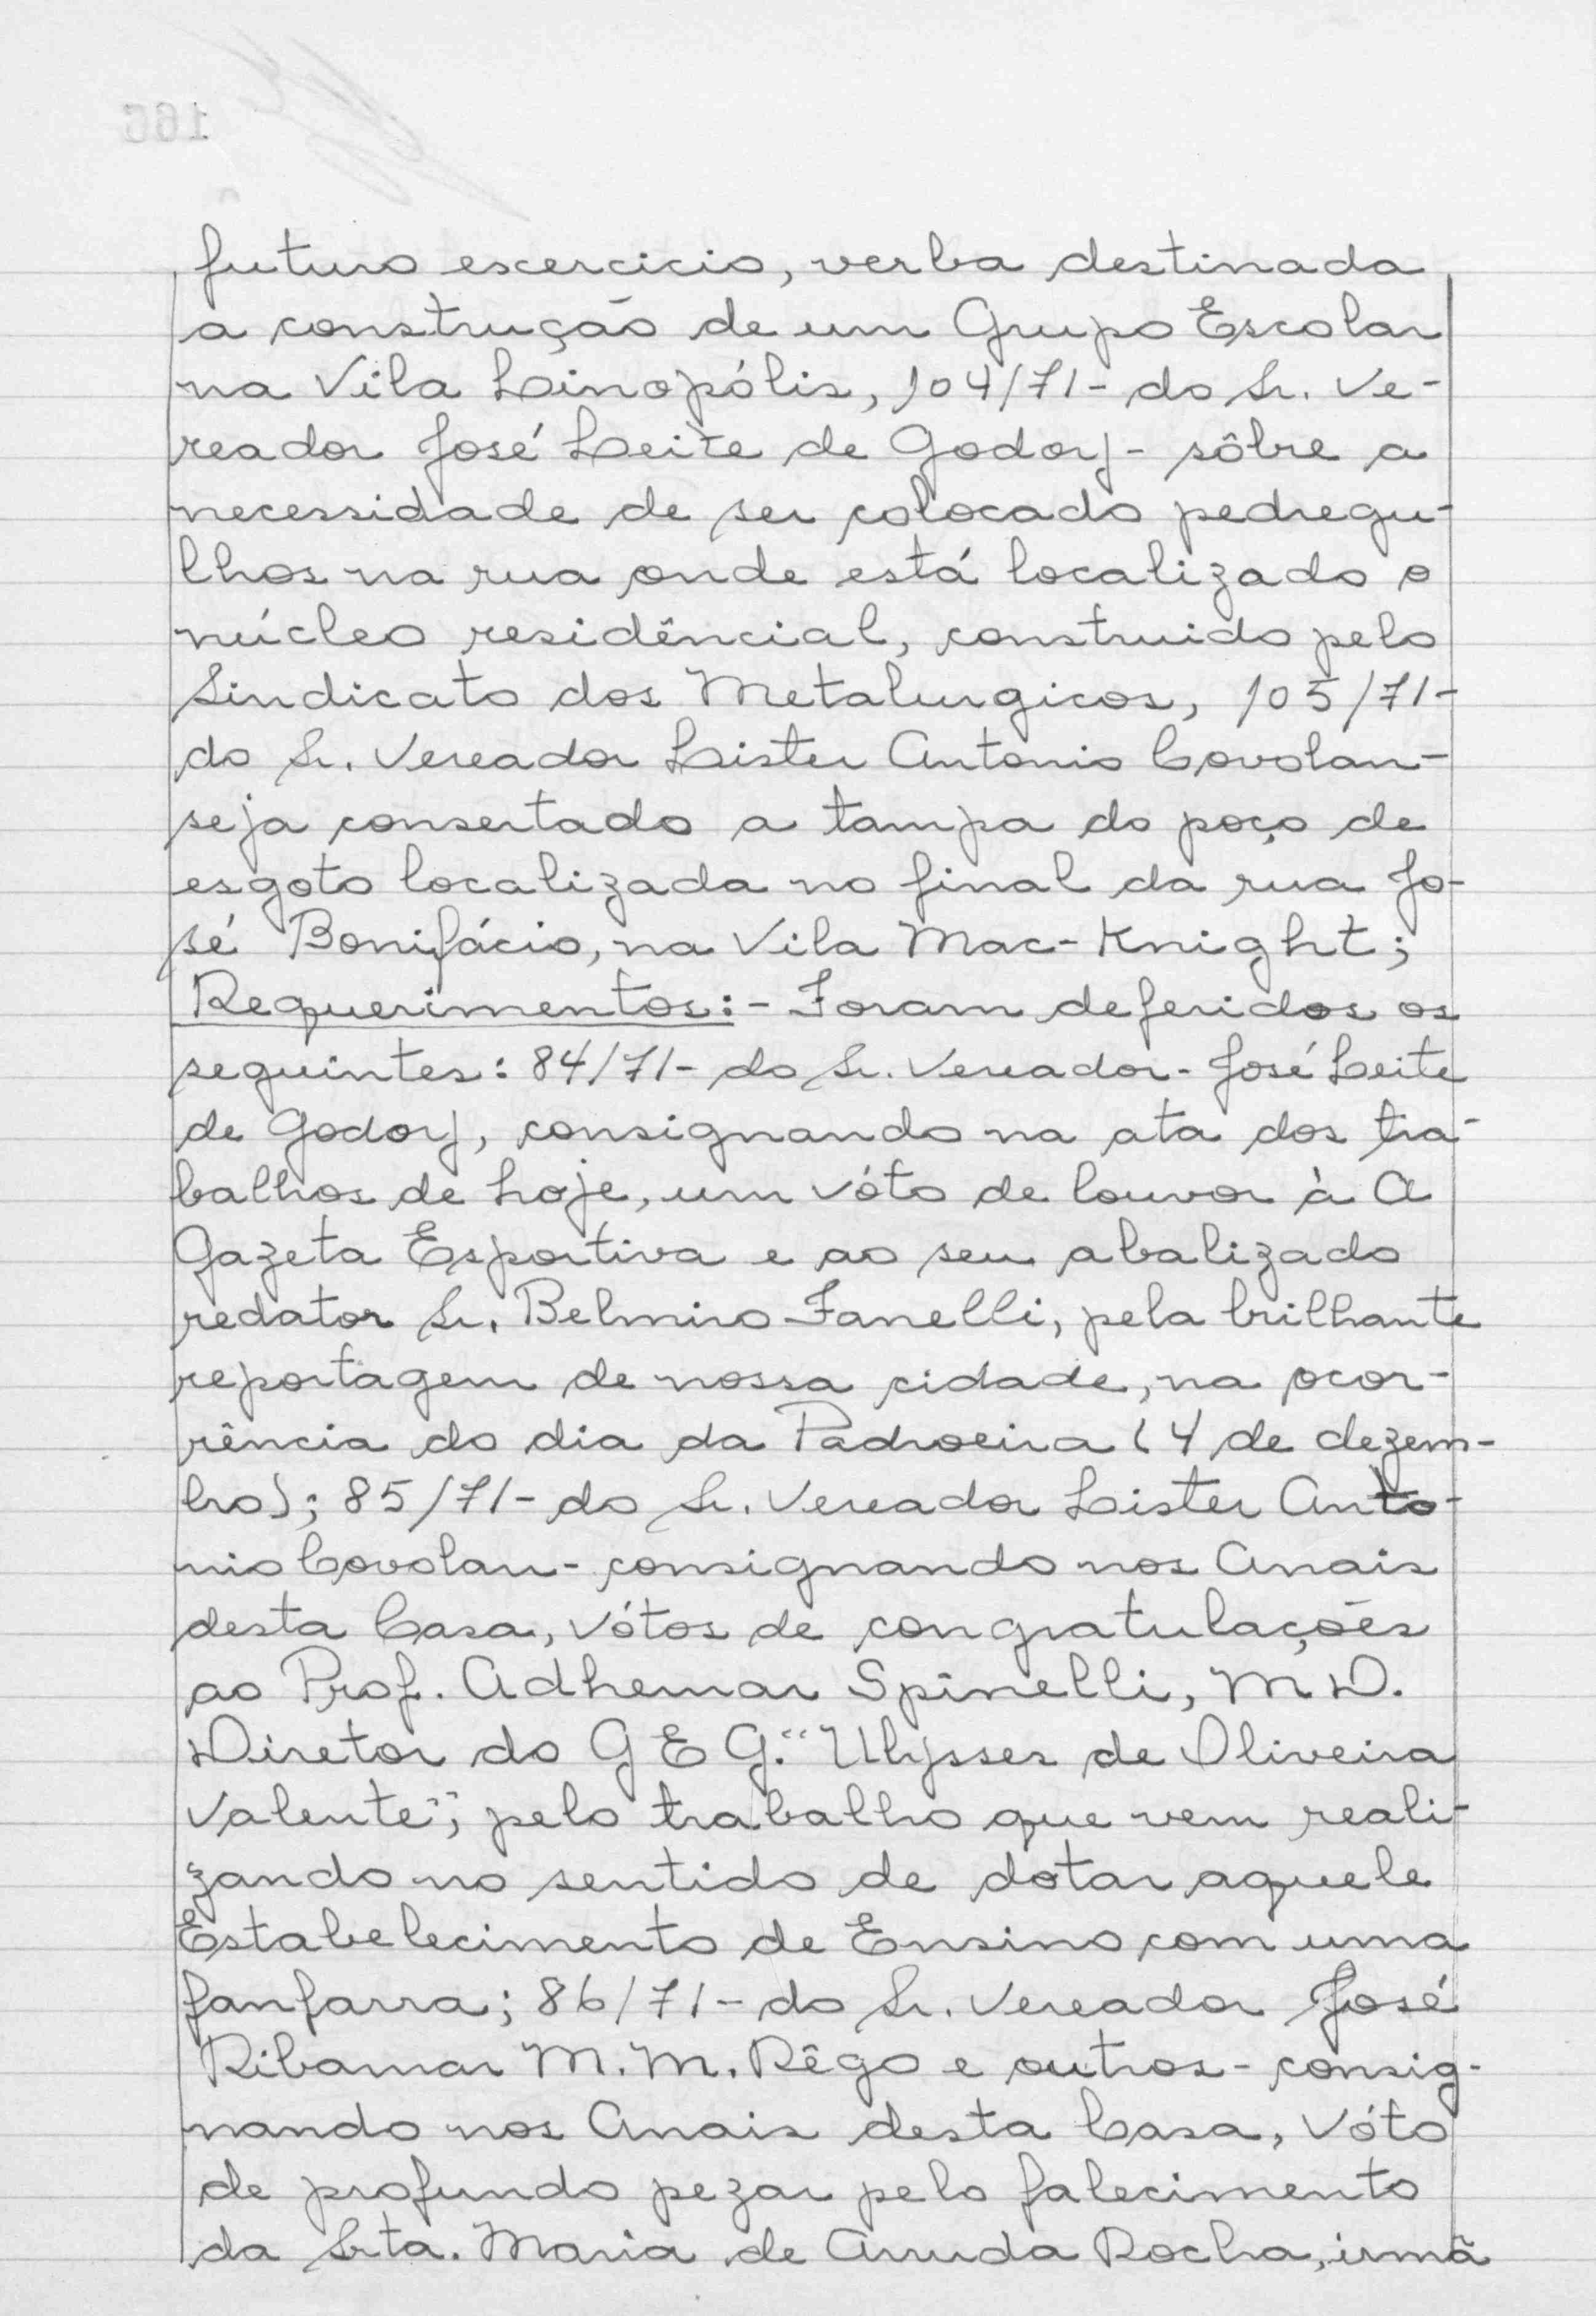 futuro escercicio, verba destinada
a construção de um Grupo Escolar
na Vila Linopólis, 104/71- do Sr. Ve-
reador José Leite de Godoy- sôbre a
necessidade de ser colocado pedregu-
lhos na rua onde está localizado o
núcleo residêncial, construido pelo
Sindicato dos Metalurgicos, 105/71-
do Sr. Vereador Lister Antonio Covolan-
seja consertado a tampa do poço de
esgoto localizada no final da rua Jo-
sé Bonifácio, na Vila Mac-Knight;
Requerimentos:- Foram deferidos os
seguintes: 84/71- do Sr. Vereador- José Leite
de Godoy, consignando na ata dos tra-
balhos de hoje, um vóto de louvor à A
Gazeta Esportiva e ao seu abalizado
redator Sr. Belmiro Fanelli, pela brilhante
reportagem de nossa cidade, na ocor-
rência do dia da Padroeira (4 de dezem-
bro); 85/71- do Sr. Vereador Lister Anto-
nio Covolan- consignando nos Anais
desta Casa, vótos de congratulações
ao Prof. Adhemar Spinelli, M.D.
Diretor do G E G. "Ulysses de Oliveira
Valente", pelo trabalho que vem reali-
zando no sentido de dotar aquele
Estabelecimento de Ensino com uma
fanfarra; 86/71- do Sr. Vereador José
Ribamar M. M. Rêgo e outros- consig-
nando nos Anais desta Casa, Vóto
de profundo pezar pelo falecimento
da Srta. Maria de Arruda Rocha, irmã